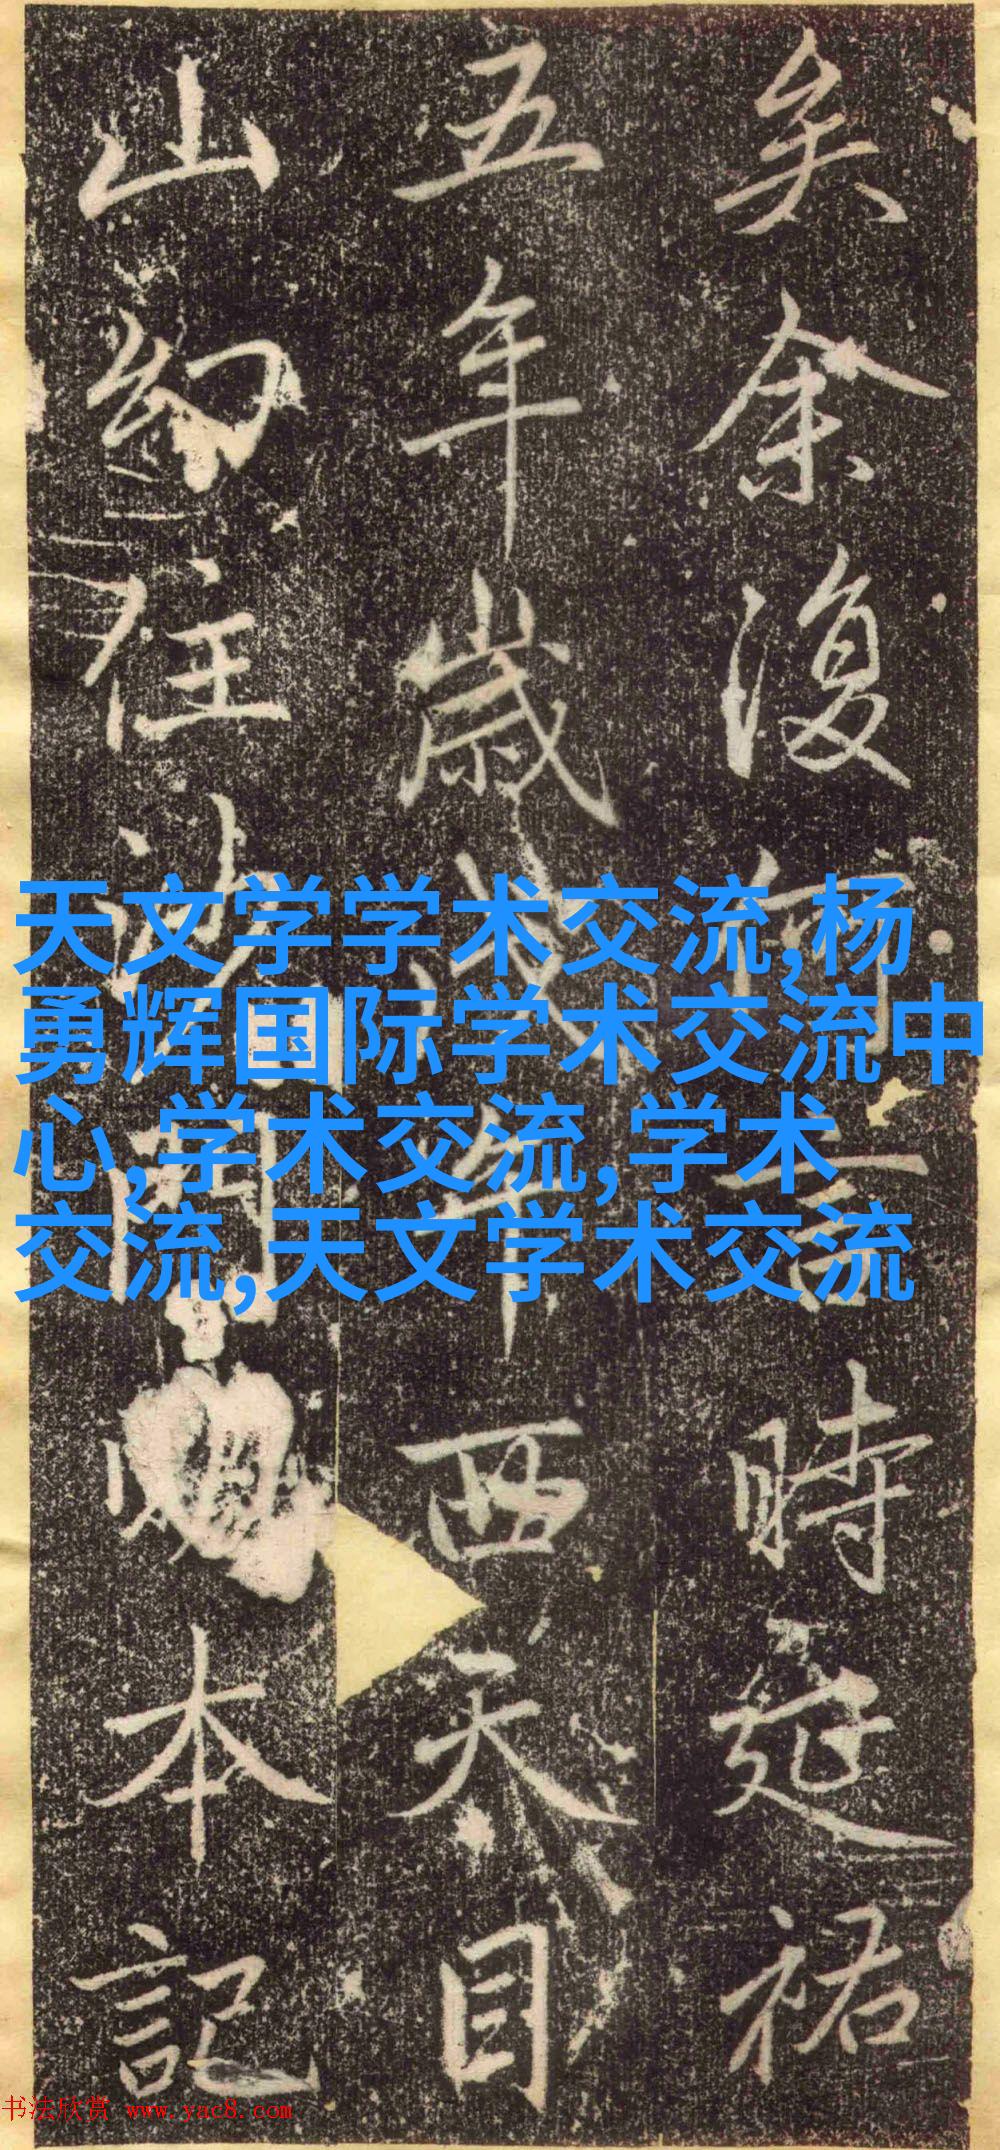 矣余復何言時延祐
五年歲戊午西天目
山幻住沙門明本記
天文学学术交流,杨
勇辉国际学术交流中
心,学术交流,学术
交流,天文学术交流
书法欣赏 www.yac8.com